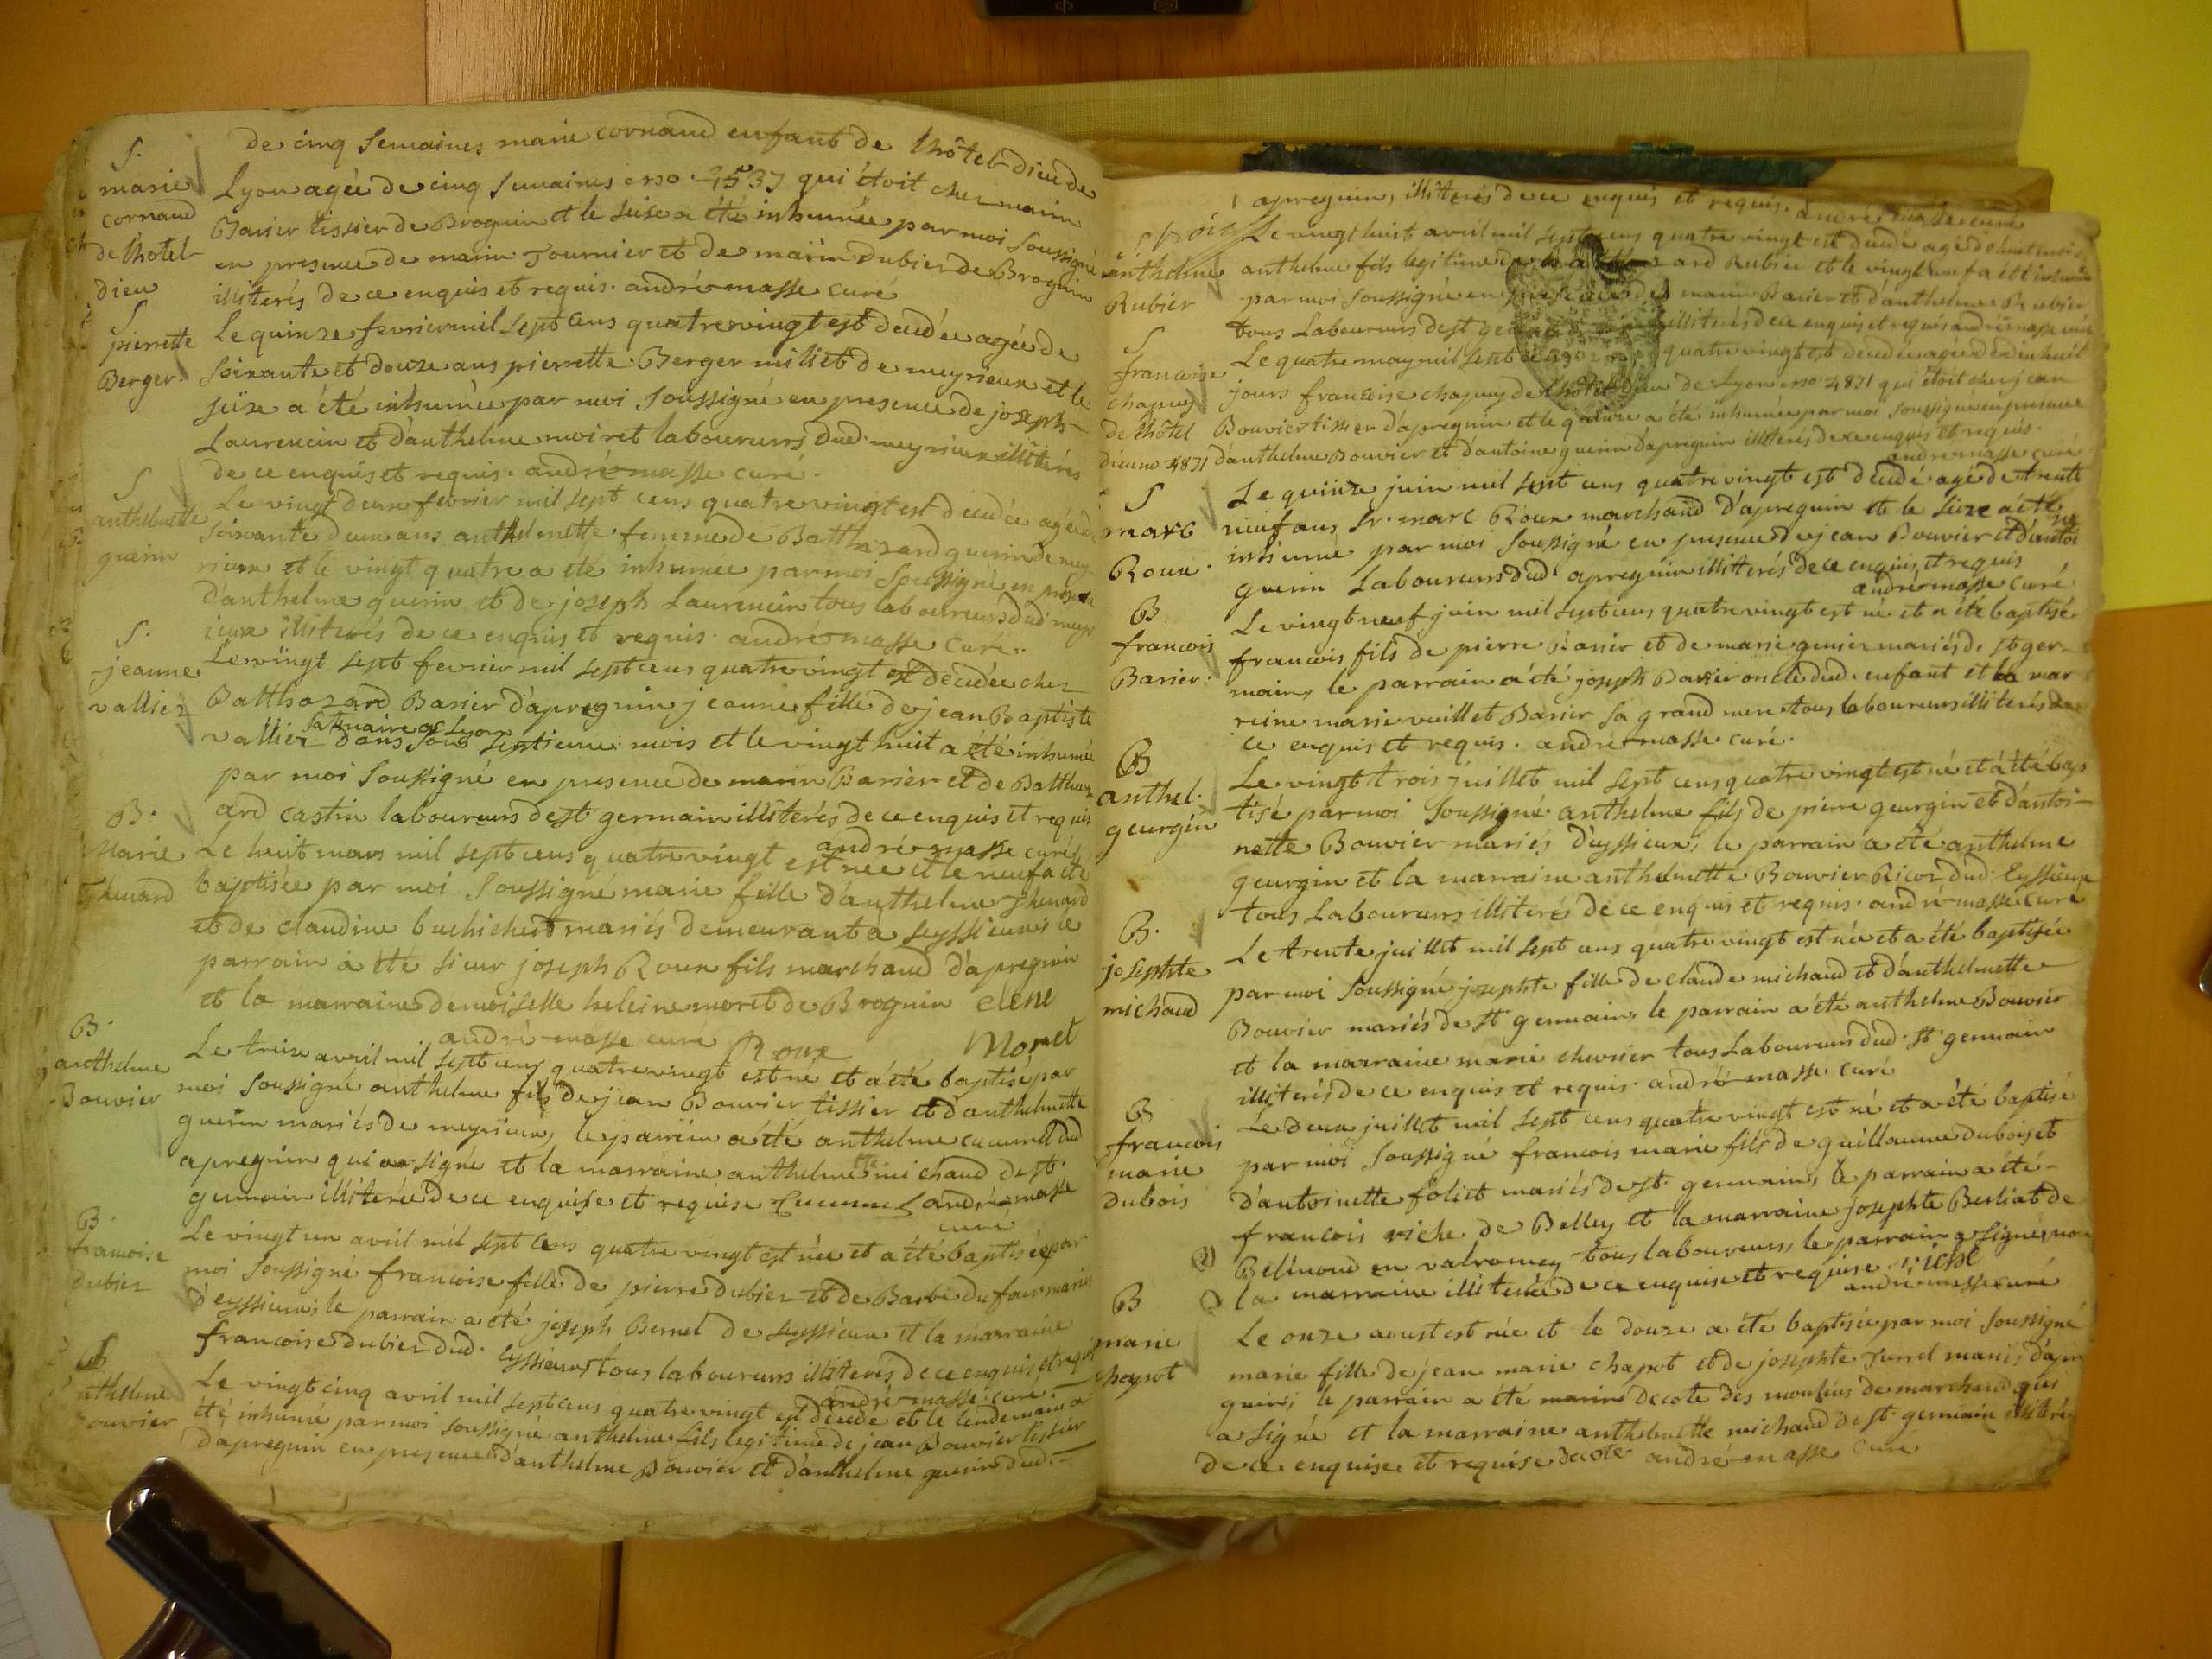 de cinq semaines marie cornand enfant de lhôtel-dieu de
S.
marie
cornand
de lhotel-
dieu
Lyon agée de cinq semaines erso. 4537 qui étoit chez marin
Barier tissier de Brognin et le seise a été inhumée par moi soussigné
en presence de marin Tournier et de marin dubier de Brognin
illiterés de ce enquis et requis. andré masse curé
S
pierrette
Berger.
Le quinze fevrier mil sept cens quatre vingt est decedée agée de
soixante et douze ans pierrette Berger miliet de meyrieux et le
seize a été inhumée par moi soussigné en presence de joseph
Laurencin et d'anthelme moiret laboureurs dud. meyrieux illiterés
de ce enquis et requis. andré masse curé.
S
anthelmette
guerin
Le vingt deux fevrier mil sept cens quatre vingt est decedée agée de
soixante deux ans anthelmette femme de Balthazard guerin de mey
rieux et le vingt quatre a été inhumée par moi soussigné en presence
d'anthelme guerin et de joseph Laurencin tous laboureurs dud. meyr
ieux illiterés de ce enquis et requis. andré masse curé.
S.
jeanne
vallier
Le vingt sept fevrier mil sept cens quatre vingt est decedée chez
Balthazard Barier d'apregnin jeanne fille de jean Baptiste
vallier dans son septieme mois et le vingt huit a été inhumée
par moi soussigné en presence de marin Barier et de Balthaz
ard castin laboureurs de st. germain illiterés de ce enquis et requis
andré masse curé
B.
Marie
Thenard
Le huit mars mil sept cens quatre vingt est née et le neuf a été
baptisée par moi soussigné marie fille d'anthelme Thenard
et de claudine buchichert mariés demeurant à seyssieux le
parrain a été sieur joseph Roux fils marchand d'apregnin
et la marraine demoiselle heleine moret de Brognin elene
andré masse curé Roux Moret
B.
anthelme
Bouvier
Le treize avril mil sept cens quatre vingt est né et a été baptisé par
moi soussigné anthelme fils de jean Bouvier tissier et d'anthelmette
guerin mariés de meyrieux, le parrain a été anthelme cucumel dud
apregnin qui a signé et la marraine anthelmette michaud de st.
germain illiterée de ce enquise et requise Cucumel andré masse
curé
B.
francoise
dubier
Le vingt un avril mil sept cens quatre vingt est née et a été baptisée par
moi soussigné francoise fille de pierre dubier et de Barbe dufour mariés
d'eyssieux, le parrain a été joseph Bernel de seyssieux et la marraine
francoise dubier dud. Eyssieux tous laboureurs illiterés de ce enquis et requis
andré masse curé.
S
anthelme
Bouvier
Le vingt cinq avril mil sept cens quatre vingt est decedé et le lendemain a
été inhumé par moi soussigné anthelme fils legitime de jean Bouvier tissier
d'apregnin en presence d'anthelme Bouvier et d'anthelme guerin dud.
apregnin, illiterés de ce enquis et requis. andré masse curé
S
anthelme
Rubier
Le vingt huit avril mil sept cens quatre vingt est decedé agé de huit mois
anthelme fils legitime de Balthazard Rubier et le vingt neuf a été inhumé
par moi soussigné en presence de marin Barier et d'anthelme Rubier
tous Laboureurs de st germain illiterés de ce enquis et requis andré masse curé
S
francoise
chapuy
de lhôtel
dieu no 4831
Le quatre may mil sept cens quatre vingt est decedée agée de dix huit
jours francoise chapuy de lhôtel dieu de Lyon erso 4831 qui étoit chez jean
Bouvier tissier d'apregnin et le a été inhumée par moi soussigné en presence
d'anthelme Bouvier et d'antoine guerin d'apregnin illiterés de ce enquis et requis.
andré masse curé
S
marc
Roux.
Le quinze juin mil sept cens quatre vingt est decedé agé de trente
neuf ans sr. marc Roux marchand d'apregnin et le seize a été
inhumé par moi soussigné en presence de jean Bouvier et d'antoine
guerin Laboureurs dud. apregnin illiterés de ce enquis et requis
andré masse curé
B
francois
Barier.
Le vingt neuf juin mil sept cens quatre vingt est né et a été baptisé
francois fils de pierre Barier et de marie genier mariés de st ger-
main, le parrain a été joseph Barier oncle dud. enfant et la mar
reine marie vuillet Barier sa grand mere tous laboureurs illiterés de
ce enquis et requis. andré masse curé.
B
anthel.
geurgin
Le vingt trois juillet mil sept cens quatre vingt est né et a été bap
tisé par moi soussigné anthelme fils de pierre geurgin et d'antoi-
nette Bouvier mariés d'eyssieux, le parrain a été anthelme
geurgin et la marraine anthelmette Bouvier Ricoz dud. Eyssieux
tous Laboureurs illiterés de ce enquis et requis. andré masse curé
B.
josephte
michaud
Le trente juillet mil sept cens quatre vingt est née et a été baptisée
par moi soussigné josephte fille de claude michaud et d'anthelmette
Bouvier mariés de st germain, le parrain a été anthelme Bouvier
et la marraine marie chevrier tous Laboureurs dud. st germain
illiterés de ce enquis et requis. andré masse curé
B
francois
marie
dubois
Le deux juillet mil sept cens quatre vingt est né et a été baptisé
par moi soussigné francois marie fils de guillaume dubois et
d'antoinette foliet mariés de st. germain, le parrain a été
francois riche de Belley et la marraine josephte Berliat de
Belmond en valromey tous laboureurs, le parrain a signé, non
la marraine illiterée de ce enquise et requise. riche
andré masse curé
B
marie
chapot
Le onze aoust est née et le douze a été baptisée par moi soussigné
marie fille de jean marie chapot et de josephte Turrel mariés d'apre
gnin, le parrain a été marin decote des moulins de marchand qui
a signé et la marraine anthelmette michaud de st. germain illiterée
de ce enquise et requise decote andré masse curé